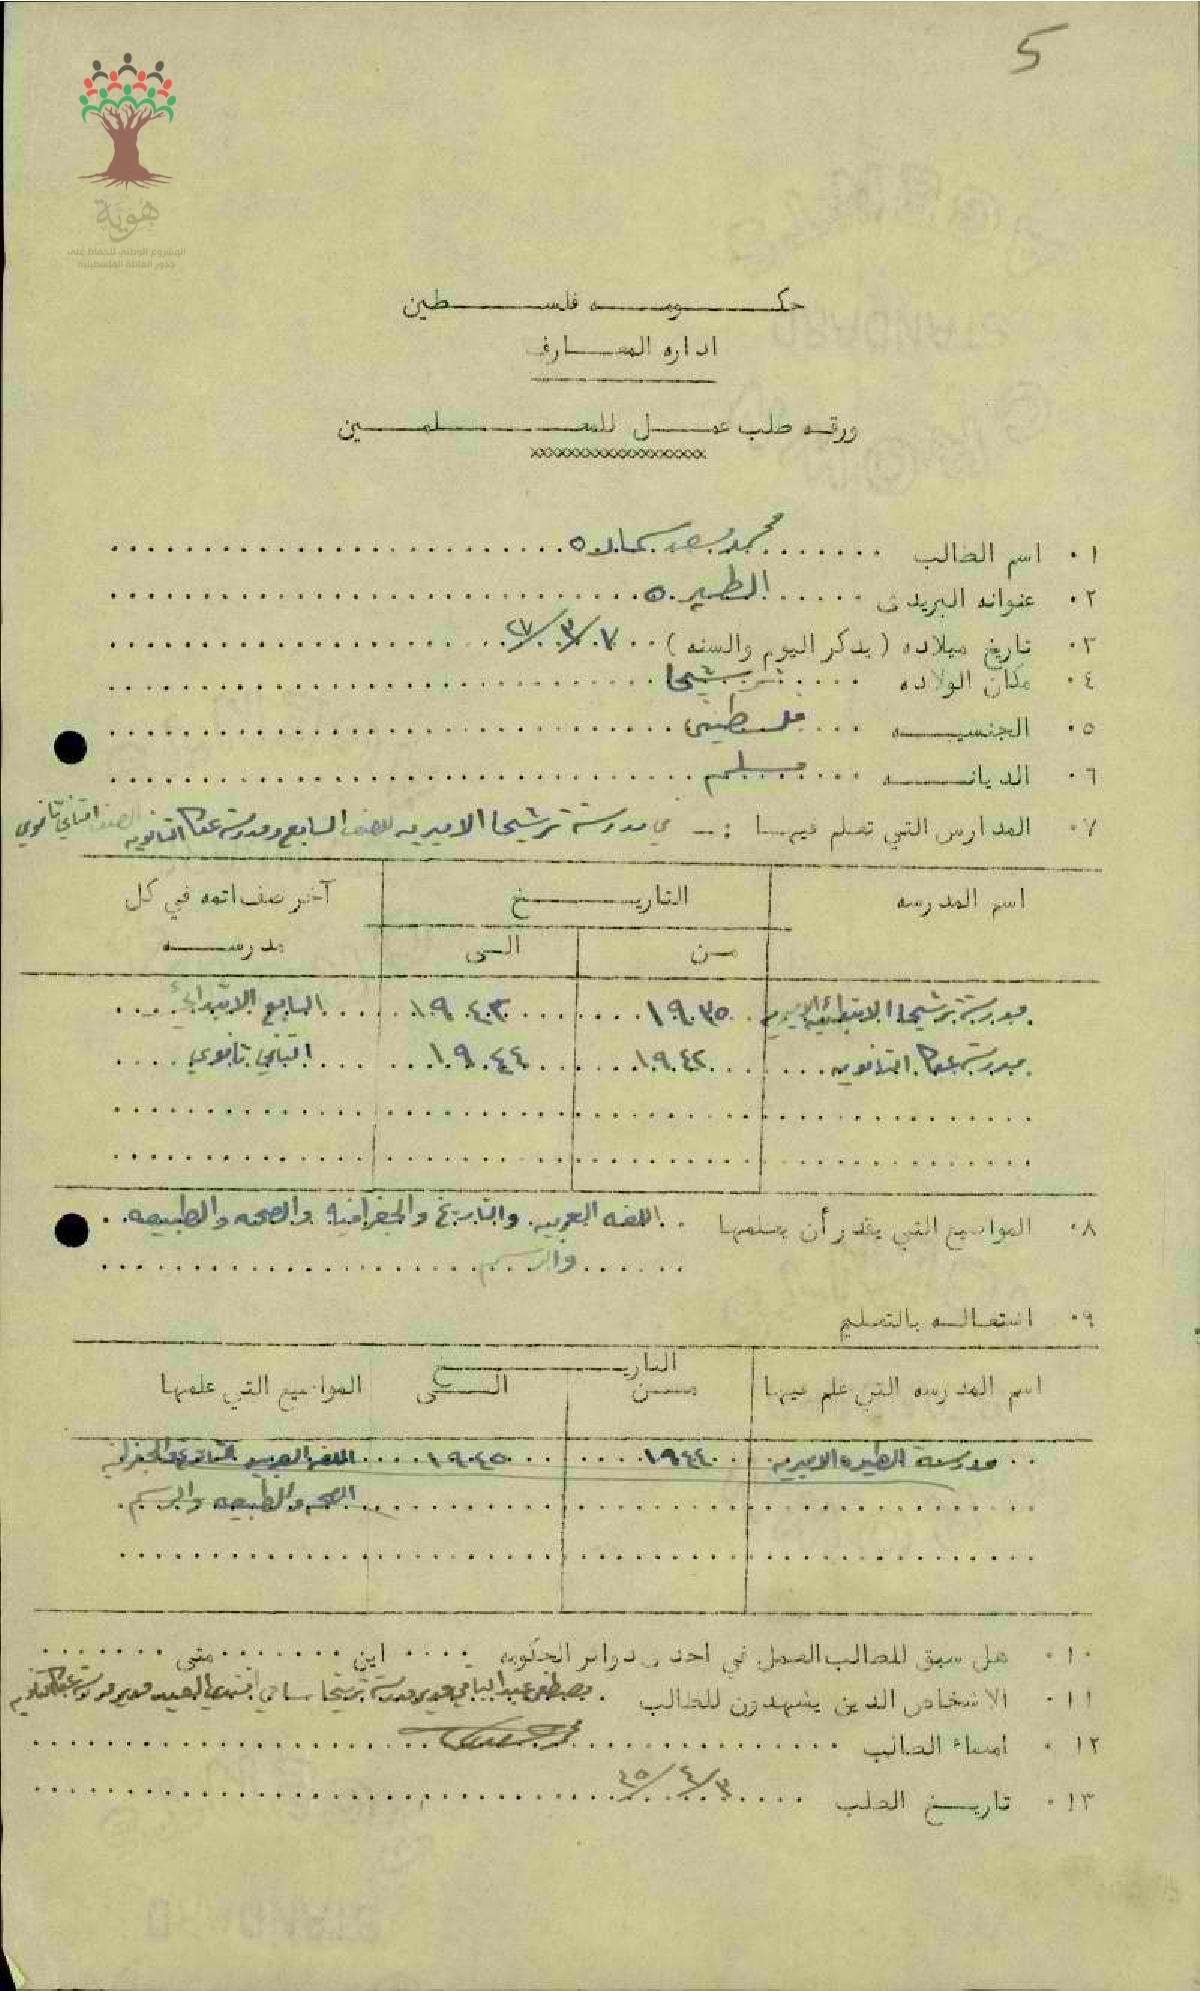 5
هوية
المشروع الوطني للحفاظ على
جذور العائلة الفلسطينية
حكومه فلسطين
اداره المعارف
ورقه طلب عمل للمعلمين
xxxxxxxxxxxxxxxxxxxx
١٠ اسم الطالب محمد سعد
٢٠ عنوانه البريدى الطيره
٣٠ تاريخ ميلاده (يذكر اليوم والسنه) ٧/٣/٢٧
٤٠ مكان الولاده ترشيحا
٥٠ الجنسيه فلسطيني
٦٠ الديانه مسلم
٧٠ المدارس التي تعلم فيها :ـ في مدرسة ترشيحا الاميريه للصف السابع ومدرسة عكا الثانويه الصف الثاني ثانوي
اسم المدرسه التاريخ آخر صف اتمه في كل
من الى مدرسه
مدرسة ترشيحا الابتدائيه الاميريه ١٩٣٥ ١٩٤٢ السابع الابتدائي
مدرسة عكا الثانويه ١٩٤٢ ١٩٤٤ الثاني ثانوي
٨٠ المواضيع التي يقدر أن يعلمها اللغه العربيه والتاريخ والجغرافيه والصحه والطبيعه
والرسم
٩٠ اشتغاله بالتعليم
التاريخ
اسم المدرسه التي علم فيها من الى المواضيع التي علمها
مدرسة الطيره الاميريه ١٩٤٤ ١٩٤٥ اللغه العربيه التاريخ والجغرافيه
الصحه والطبيعه والرسم
١٠٠ هل سبق للطالب العمل في احدى دوائر الحكومه اين متى
١١٠ الاشخاص الذين يشهدون للطالب مدير مدرسة ترشيحا سامي افندي العيد مدير مدرسة عكا الثانويه
١٢٠ امضاء الطالب
١٣٠ تاريخ الطلب ٣/٤/٤٥